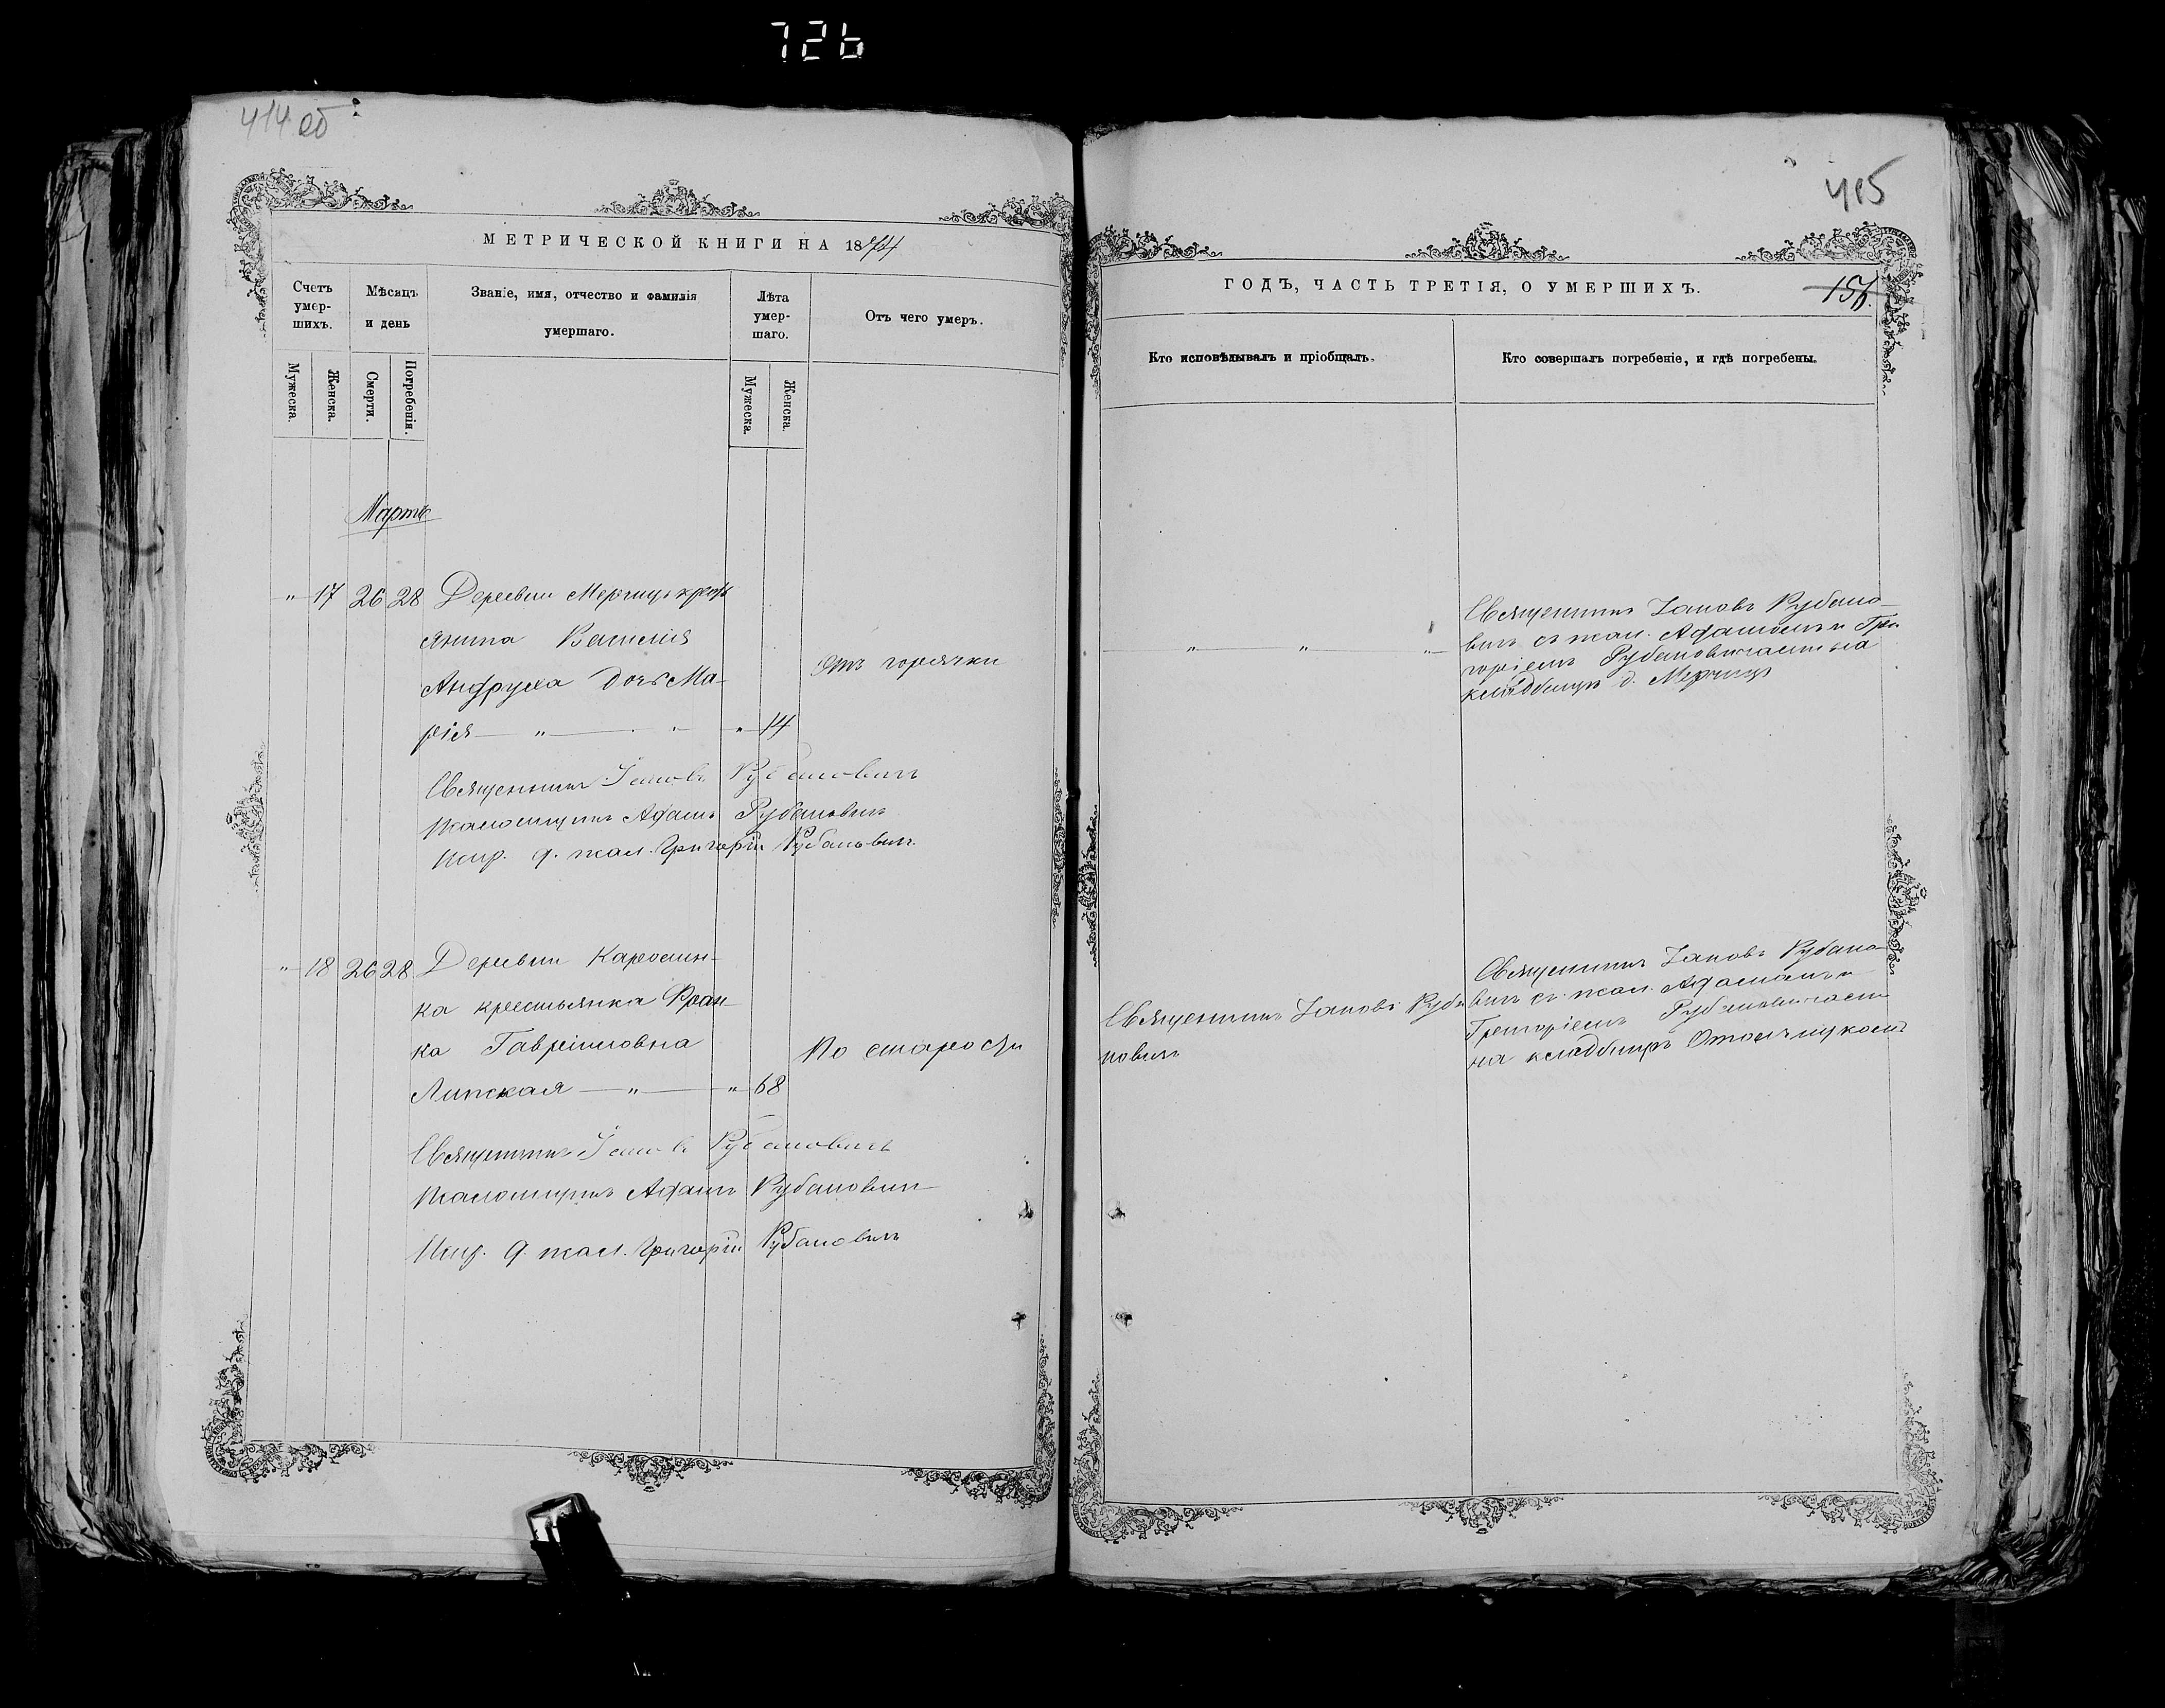 726
414 об
МЕТРИЧЕСКОЙ КНИГИ НА 1874
Счетъ умер-шихъ.
Мѣсяцъ и день
Званіе, имя, отчество и фамилія умершаго.
Лѣта умер-шаго.
Отъ чего умеръ.
Мужеска.
Женска.
Смерти.
Погребенія.
Мужеска.
Женска.
Мартъ
" 17 26 28 Деревни Мерчицъ крестъ
янина Василія
Андруха дочь Ма-
рія — " — " — 14
Отъ горячки
Священникъ Іаковъ Рубановичъ
Псаломщикъ Адамъ Рубановичъ
Исп. д. псал. Григорій Рубановичъ
" 18 26 28 Деревни Каролин-
ка крестьянка Фран-
ка Гавріиловна
Липская — " — " 68
По старости
Священникъ Іаковъ Рубановичъ
Псаломщикъ Адамъ Рубановичъ
Исп. д. псал. Григорій Рубановичъ
415
ГОДЪ, ЧАСТЬ ТРЕТІЯ, О УМЕРШИХЪ.
156.
Кто исповѣдывалъ и пріобщалъ.
Кто совершалъ погребеніе, и гдѣ погребены.
" " "
Священникъ Іаковъ Рубано-
вичъ съ псал. Адамомъ и Гри
горіемъ Рубановичами на
кладбищѣ д. Мерчицъ
Священникъ Іаковъ Руба
новичъ
Священникъ Іаковъ Рубано-
вичъ съ псал. Адамомъ и
Григоріемъ Рубановичами
на кладбищѣ